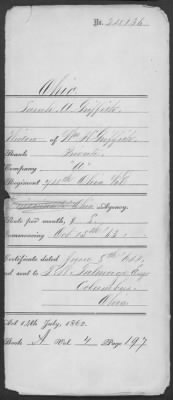 No. 24136
Ohio
Sarah A Griffith
Widow of Wm H Griffith
Rank Private
Company "A"
Regiment 74th Ohio Vol
Ohio Agency.
Rate per month, $ 8
Commencing Oct 15th 63
Certificate dated June 8th
and sent to
Columbus
Ohio
Act 14th July, 1862.
Book A Vol. 4 Page 197